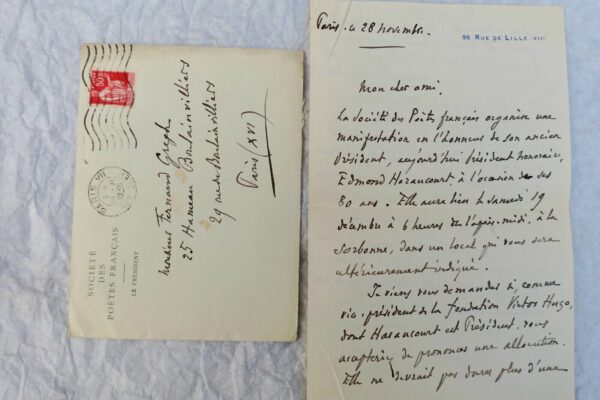 SOCIÉTÉ
DES
POÈTES FRANÇAIS
LE PRÉSIDENT
Monsieur Fernand Gregh
25 Hameau Boulainvilliers
29 rue de Boulainvilliers
Paris (XVI)
50c
PARIS VII
Paris. Le 28 novembre.
95 RUE DE LILLE. VII
Mon cher ami.
La Société des Poètes français organise une
manifestation en l'honneur de son ancien
Président, aujourd'hui président honoraire,
Edmond Haraucourt à l'occasion de ses
80 ans. Elle aura lieu le samedi 19
décembre à 6 heures de l'après-midi, à la
Sorbonne, dans un local qui vous sera
ultérieurement indiqué.
Je viens vous demander si, comme
vice-président de la fondation Victor Hugo,
dont Haraucourt est Président, vous
accepteriez de prononcer une allocution.
Elle ne devrait pas durer plus d'une